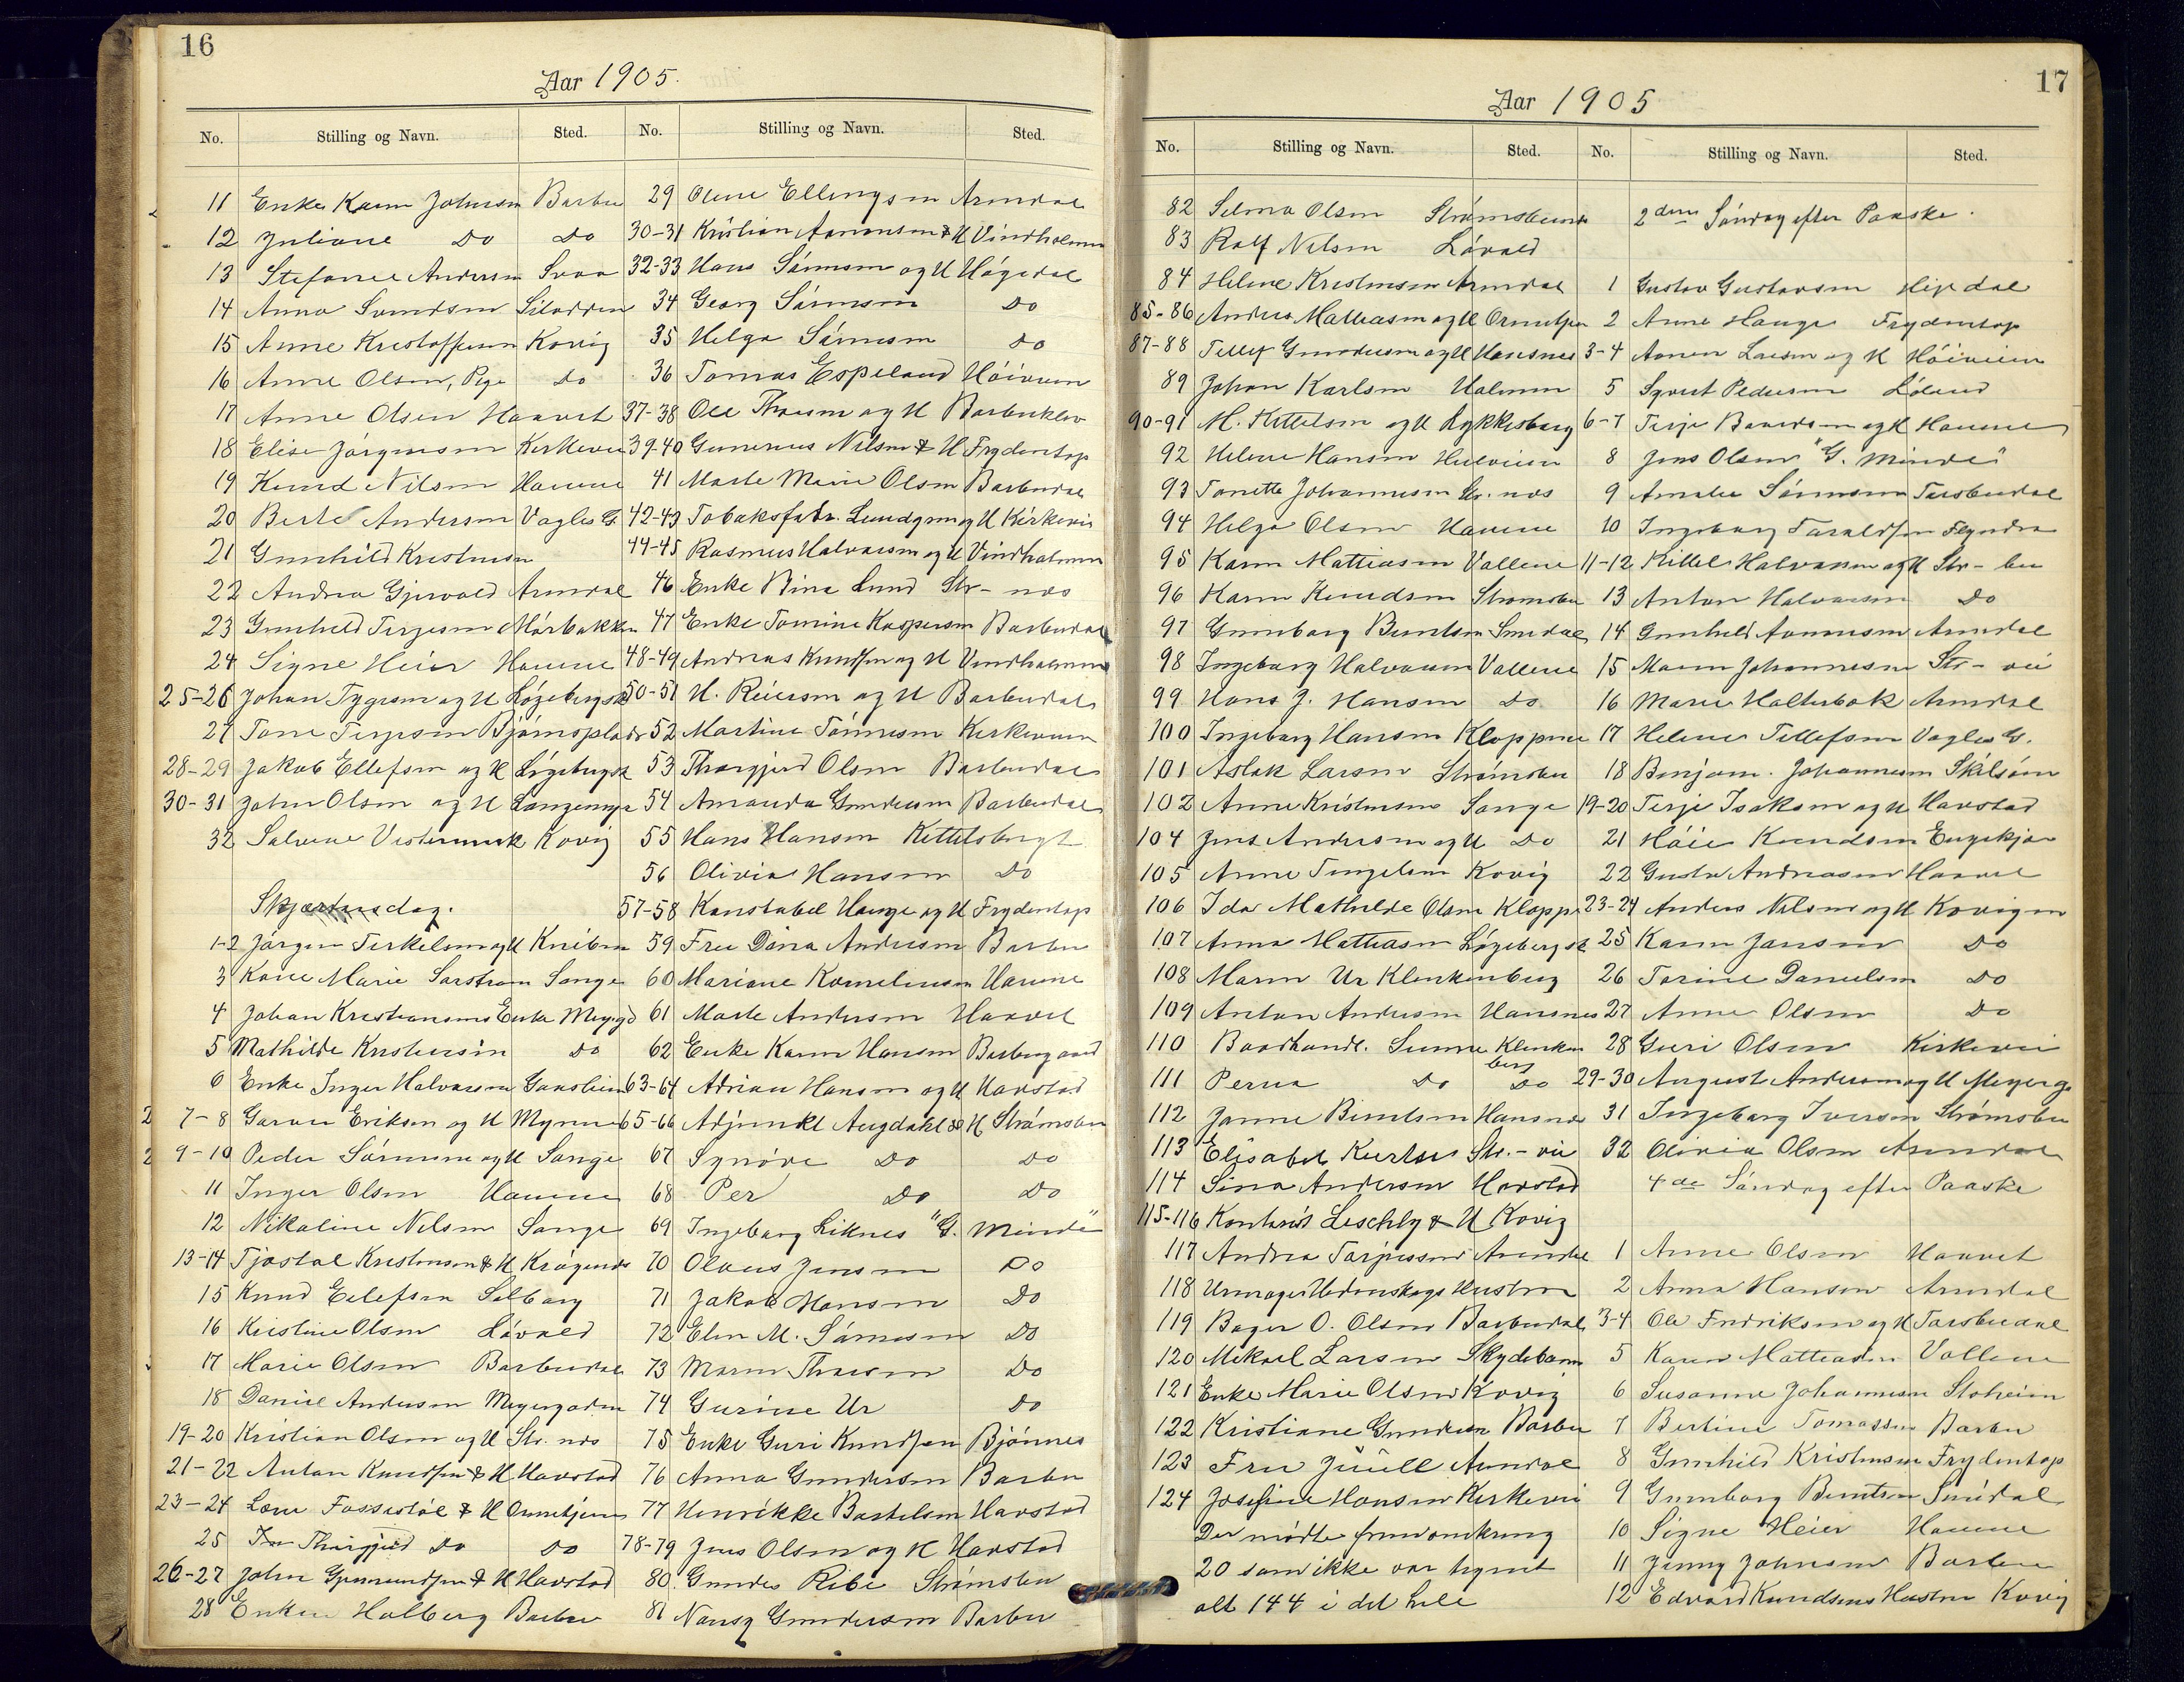 16
Aar 1905.
No. Stilling og Navn. Sted.
11 Enke Karen Johnsen Barbu
12 Juliane Do Do
13 Stefanie Andersen Svaa
14 Anna Svendsen Silodden
15 Anne Kristoffersen Kovig
16 Anne Olsen, Pige Do
17 Anne Olsen Haavet
18 Elise Jørgensen Kirkevei
19 Knud Nilsen Havene
20 Berte Andersen Vagles G.
21 Gunhild Kristensen
22 Andrea Gjervold Arendal
23 Gunhild Terjesen Mørbakken
24 Signe Heier Havene
25-26 Johan Tygesen og H Løgebergsk
27 Tone Terjesen Bjørnsplads
28-29 Jakob Ellefsen og H Løgebergsk
30-31 John Olsen og H Langemyr
32 Salvine Vestermark Kovig
Skjærtorsdag.
1-2 Jørgen Terkelsen og H Kniben
3 Kare Marie Sarstrøm Songe
4 Johan Kristiansens Enke Meyergd
5 Mathilde Kristensen Do
6 Enke Inger Halvorsen Gaasheim
7-8 Garva Eriksen og H Myrene
9-10 Peder Sørensen og H Songe
11 Inger Olsen Havene
12 Nikoline Nilsen Songe
13-14 Tjøstal Kristensen & H Krøgenes
15 Knud Eilefsen Solborg
16 Kristine Olsen Løvold
17 Marie Olsen Barbudal
18 Daniel Andersen Meyergaden
19-20 Kristian Olsen og H Str. nes
21-22 Anton Knudsen & H Havstad
23-24 Lars Fossestøl & H Ormetjern
25 Thorgjerd Do Do
26-27 John Gunmundsen & H Havstad
28 Enken Holberg Barbu
No. Stilling og Navn. Sted.
29 Oline Ellingsen Arendal
30-31 Kristian Aanonsen & H Vindholmen
32-33 Hans Sørensen og H Høgedal
34 Georg Sørensen Do
35 Helga Sørensen Do
36 Tomas Espeland Høiveien
37-38 Ole Thorsen og H Barbuklev
39-40 Gunerius Nilsen & H Frydentop
41 Marte Marie Olsen Barbudal
42-43 Tobaksfabr. Lundgren og H Kirkevei
44-45 Rasmus Halvorsen og H Vindholmen
46 Enke Bina Lund Str-nes
47 Enke Tomine Kaspersen Barbudal
48-49 Andreas Knudsen og H Vindholmen
50-51 H. Reiersen og H Barbudal
52 Martine Tønnesen Kirkeveien
53 Thorgjerd Olsen Barbudal
54 Amanda Gundersen Barbudal
55 Hans Hansen Kittelsbugt
56 Olivia Hansen Do
57-58 Konstabel Hauge og H Frydentop
59 Fru Dina Andersen Barbu
60 Mariane Kornelinsen Havene
61 Marte Andersen Haavet
62 Enke Karen Hansen Barbugaard
63-64 Adrian Hansen og H Havstad
65-66 Adjunkt Augdahl & H Strømsbu
67 Synøve Do Do
68 Per Do Do
69 Ingeborg Liknes "G. Minde"
70 Olaus Jensen Do
71 Jakob Hansen Do
72 Elen M. Sørensen Do
73 Maren Thorsen Do
74 Gurine Ur Do
75 Enke Guri Knudsen Bjønnes
76 Anna Gundersen Barbu
77 Henrikke Bertelsen Havstad
78-79 Jens Olsen og H Havstad
80 Gundes Ribe Strømsbu
81 Nansy Gundersen Barbu
17
Aar 1905
No. Stilling og Navn. Sted.
82 Selma Olsen Strømsbu
83 Rolf Nilsen Løvold
84 Helene Kristensen Arendal
85-86 Anders Mathiasen og H Ormetjen
87-88 Tellef Gundersen og H Hansnes
89 Johan Karlsen Holmen
90-91 M. Kittelsen og H Lykkesborg
92 Helene Hansen Hulveien
93 Tonette Johannesen Str. nes
94 Helga Olsen Havene
95 Karen Mattiasen Vollene
96 Karen Knudsen Strømsbu
97 Gunborg Berntsen Smidal
98 Ingeborg Halvorsen Vollene
99 Hans J. Hansen Do
100 Ingeborg Hansen Kloppene
101 Aslak Larsen Strømsbu
102 Anne Kristensen Songe
104 Jens Andersen og H Do
105 Anne Tingelsen Kovig
106 Ida Mathilde Olsen Kloppe
107 Anna Mattiasen Løgebergsk
108 Maren Ur Klenkenberg
109 Anton Andersen Hansnes
110 Baadhandl. Sunne Klenkenberg
111 Perna Do Do
112 Janne Berntsen Hansnes
113 Elisabet Kertsen Str.-vei
114 Sina Andersen Havstad
115-116 Kontorist Leschly & H Kovig
117 Andrea Torjussen Arendal
118 Urmager Hedenskogs Hustru
119 Bager O. Olsen Barbudal
120 Mikael Larsen Skydebanen
121 Enke Marie Olsen Kovig
122 Kristiane Gundersen Barbu
123 Fru Juell Arendal
124 Josefine Hansen Kirkevei
Der mødte frem omkring
20 som ikke var tegnet
alt 144 i det hele
No. Stilling og Navn. Sted.
2den Søndag efter Paaske.
1 Gustav Gustavsen Heirdal
2 Anne Hauge Frydentop
3-4 Aanen Larsen og H Høiveien
5 Syvert Pedersen Lølund
6-7 Terje Baardsen og H Havene
8 Jens Olsen "G. Minde"
9 Amalie Sørensen Torsbudal
10 Ingeborg Taraldsen Flyndra
11-12 Kittel Halvorsen og H Str-bu
13 Anton Halvorsen Do
14 Gunhild Aanonsen Arendal
15 Maren Johannesen Str-vei
16 Marie Holterbak Arendal
17 Helene Tellefsen Vagles G.
18 Benjam. Johannesen Skilsøen
19-20 Terje Isaksen og H Havstad
21 Høie Knudsen Engekjær
22 Gusta Andreasen Haavet
23-24 Anders Nilsen og H Kovigen
25 Karen Jansen Do
26 Torine Danielsen Do
27 Anne Olsen Do
28 Guri Olsen Kirkevei
29-30 August Andersen og H Meyerg.
31 Ingeborg Iversen Strømsbu
32 Olivia Olsen Arendal
4de Søndag efter Paaske
1 Anne Olsen Haavet
2 Anna Hansen Arendal
3-4 Ole Fredriksen og H Torsbudal
5 Karen Mattiasen Vollene
6 Susanne Johannesen Sloheien
7 Bertine Tomassen Barbu
8 Gunhild Kristensen Frydentop
9 Gunborg Berntsen Smidal
10 Signe Heier Havene
11 Jenny Johnsen Barbu
12 Edvard Knudsens Hustru Kovig